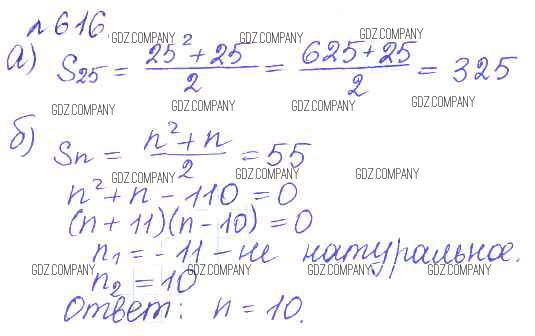 №616. GDZ.COMPANY GDZ.COMPANY GDZ.COMPANY
а) S₂₅ = (25² + 25)/2 = (625 + 25)/2 = 325
GDZ.COMPANY GDZ.COMPANY GDZ.COMPANY GDZ.COMPANY
б) Sₙ = (n² + n)/2 = 55
GDZ.COMPANY GDZ.COMPANY GDZ.COMPANY
n² + n − 110 = 0
(n + 11)(n − 10) = 0
n₁ = − 11 – не натуральное.
GDZ.COMPANY GDZ.COMPANY GDZ.COMPANY GDZ.COMPANY
n₂ = 10
Ответ: n = 10.